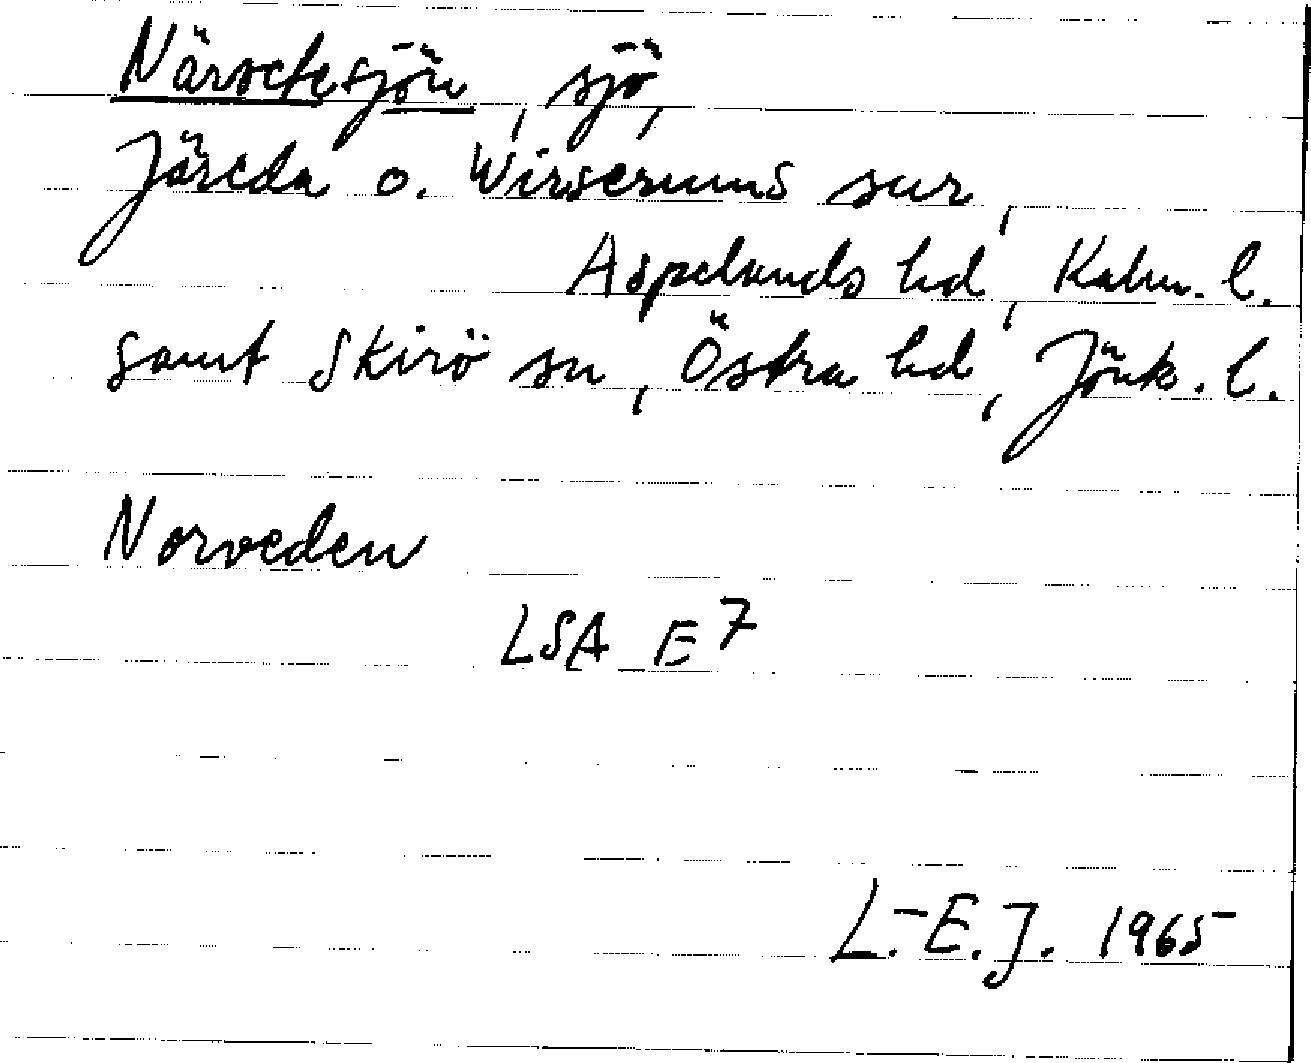 Närvetesjön, sjö,
Järeda o. Wirserums snr,
Aspelands hd, Kalm. l.
samt Skirö sn, Östra hd, Jönk. l.
Norveden
LSA E7
L.-E.J. 1965